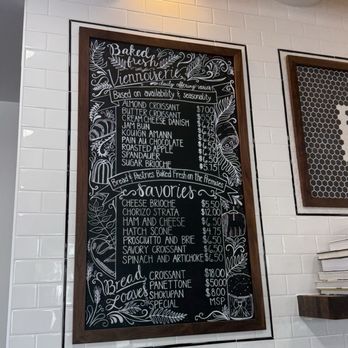 Baked
fresh
Viennoiserie
Based on availability & seasonality
ALMOND CROISSANT $7.00
BUTTER CROISSANT
CREAM CHEESE DANISH
JAM BUN
KOUIGN AMANN
PAIN AU CHOCOLATE
ROASTED APPLE
SPANDAUER
SUGAR BRIOCHE
Bread & Pastries Baked Fresh on the Premises
Savories
CHEESE BRIOCHE $5.50
CHORIZO STRATA $12.00
HAM AND CHEESE $6.50
HATCH SCONE $4.75
PROSCIUTTO AND BRIE $6.50
SAVORY CROISSANT $6.50
SPINACH AND ARTICHOKE $6.50
Bread
Loaves
CROISSANT $18.00
PANETTONE $50.00
SHOKUPAN $8.00
SPECIAL MSP